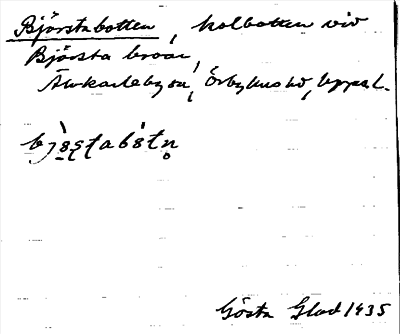 Björstabotten, kolbotten vid
Björsta broar,
Älvkarleby sn, Örbyhus hd, Uppsal.
bjo̱ʂʈabȯtn̥
Gösta Glad 1935